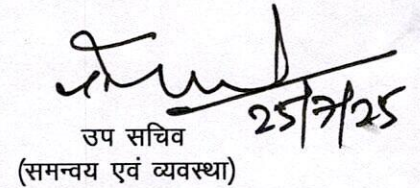 25/7/25
उप सचिव
(समन्वय एवं व्यवस्था)